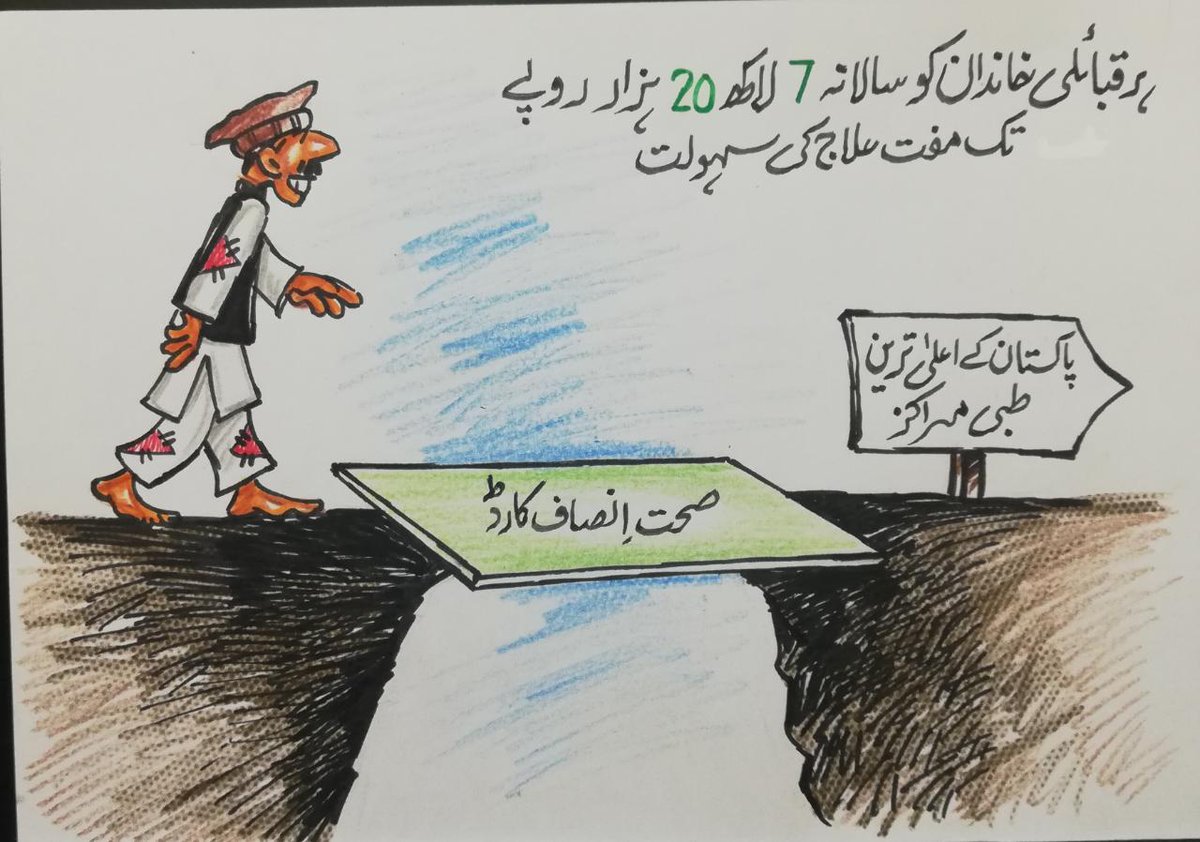 ہر قبائلی خاندان کو سالانہ 7 لاکھ 20 ہزار روپے
تک مفت علاج کی سہولت
پاکستان کے اعلیٰ ترین
طبی مراکز
صحت اِنصاف کارڈ